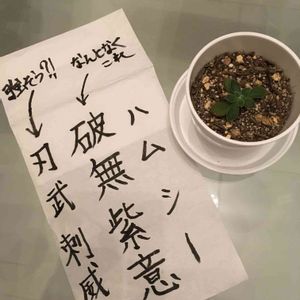 ハムシー
なんとなく
これ
破無紫意
強そう?!
刃武刺威